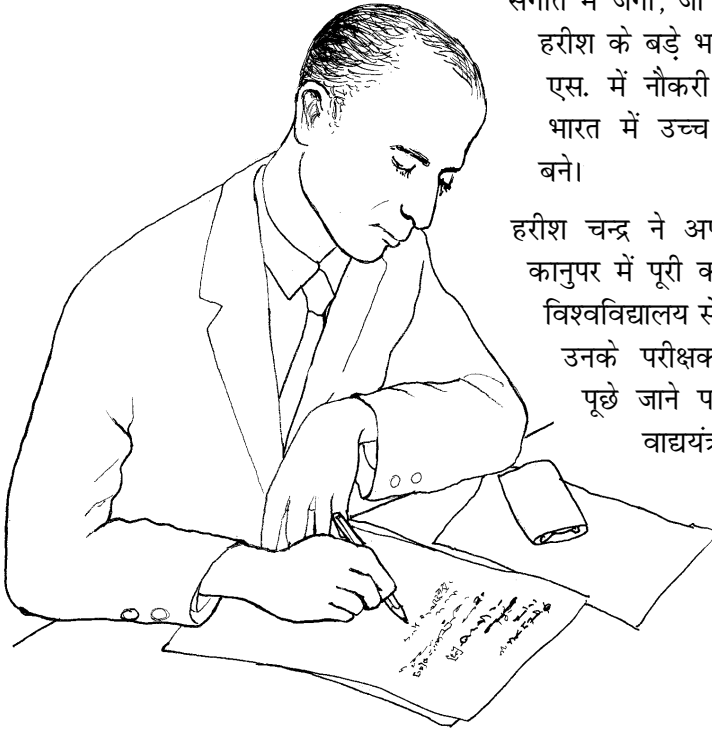 संगीत में जगी, जो
हरीश के बड़े भ
एस. में नौकरी
भारत में उच्च
बने।
हरीश चन्द्र ने अप
कानुपर में पूरी क
विश्वविद्यालय से
उनके परीक्षक
पूछे जाने प
वाद्ययंत्र